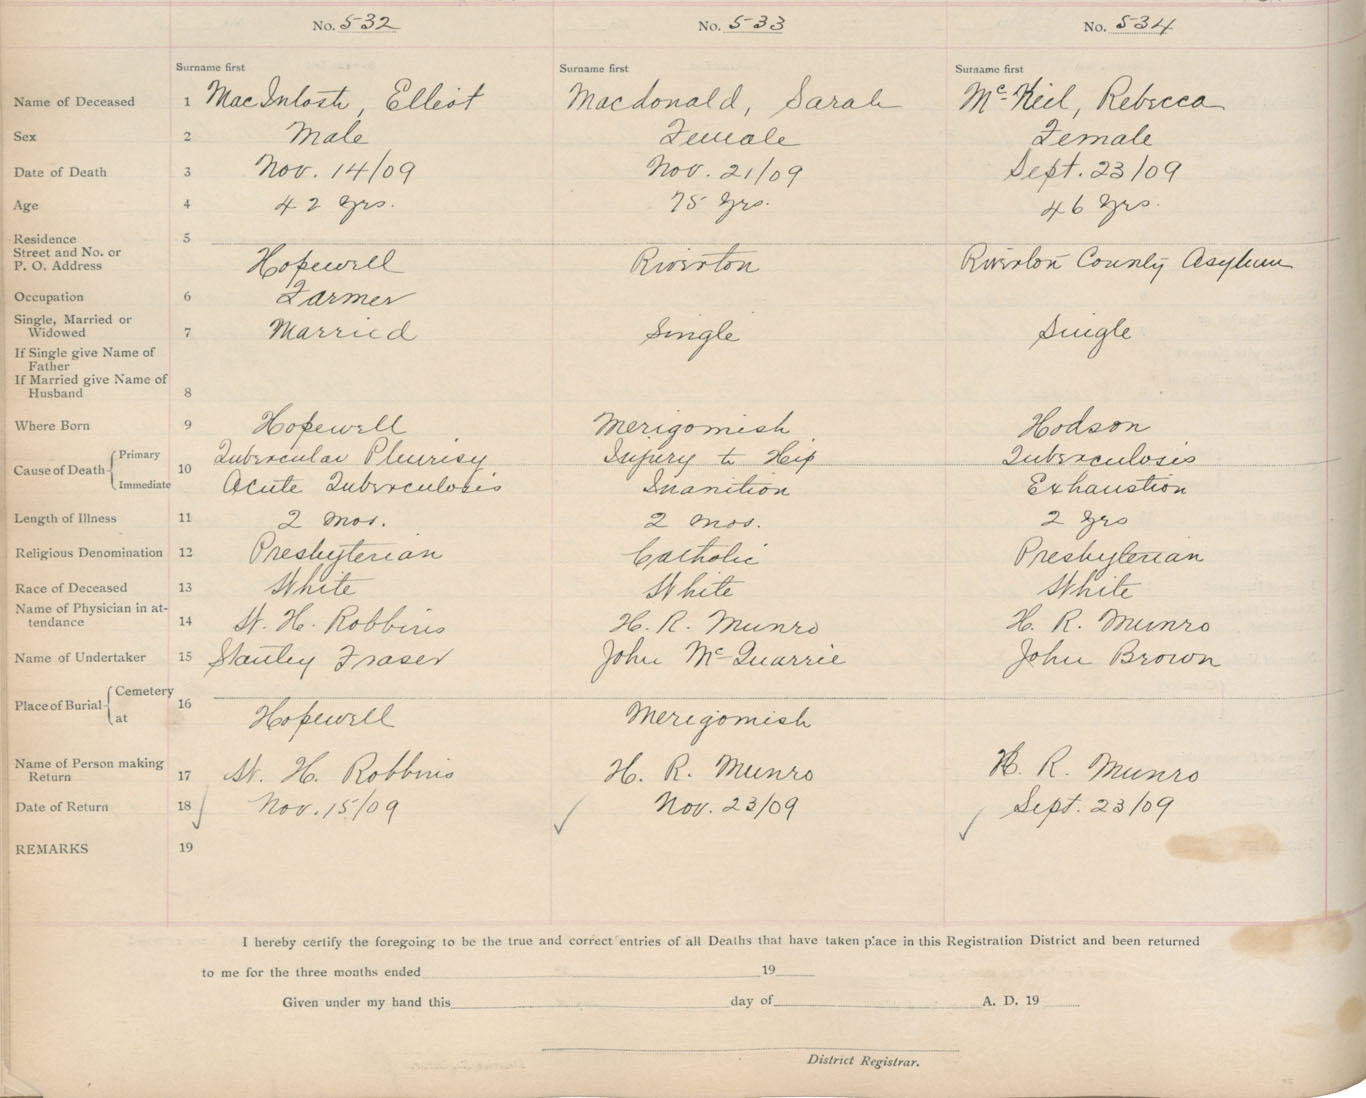 No. 532 No. 533 No. 534
Surname first Surname first Surname first
Name of Deceased 1 MacIntosh, Elliot Macdonald, Sarah Mc-Keil, Rebecca
Sex 2 Male Female Female
Date of Death 3 Nov. 14/09 Nov. 21/09 Sept. 23/09
Age 4 42 yrs. 75 yrs. 46 yrs.
Residence 5
Street and No. or
P. O. Address Hopewell Riverton Riverton County Asylum
Occupation 6 Farmer
Single, Married or
Widowed 7 Married Single Single
If Single give Name of
Father
If Married give Name of
Husband 8
Where Born 9 Hopewell Merigomish Hodson
Cause of Death Primary 10 Tubercular Pleurisy Injury to Hip Tuberculosis
Immediate Acute Tuberculosis Inanition Exhaustion
Length of Illness 11 2 mos. 2 mos. 2 yrs
Religious Denomination 12 Presbyterian Catholic Presbyterian
Race of Deceased 13 White White White
Name of Physician in at-
tendance 14 W. H. Robbins H. R. Munro H. R. Munro
Name of Undertaker 15 Stanley Fraser John Mc-Quarrie John Brown
Place of Burial Cemetery 16
at Hopewell Merigomish
Name of Person making
Return 17 W. H. Robbins H. R. Munro H. R. Munro
Date of Return 18 Nov. 15/09 Nov. 23/09 Sept. 23/09
REMARKS 19
I hereby certify the foregoing to be the true and correct entries of all Deaths that have taken place in this Registration District and been returned
to me for the three months ended 19
Given under my hand this day of A. D. 19
District Registrar.